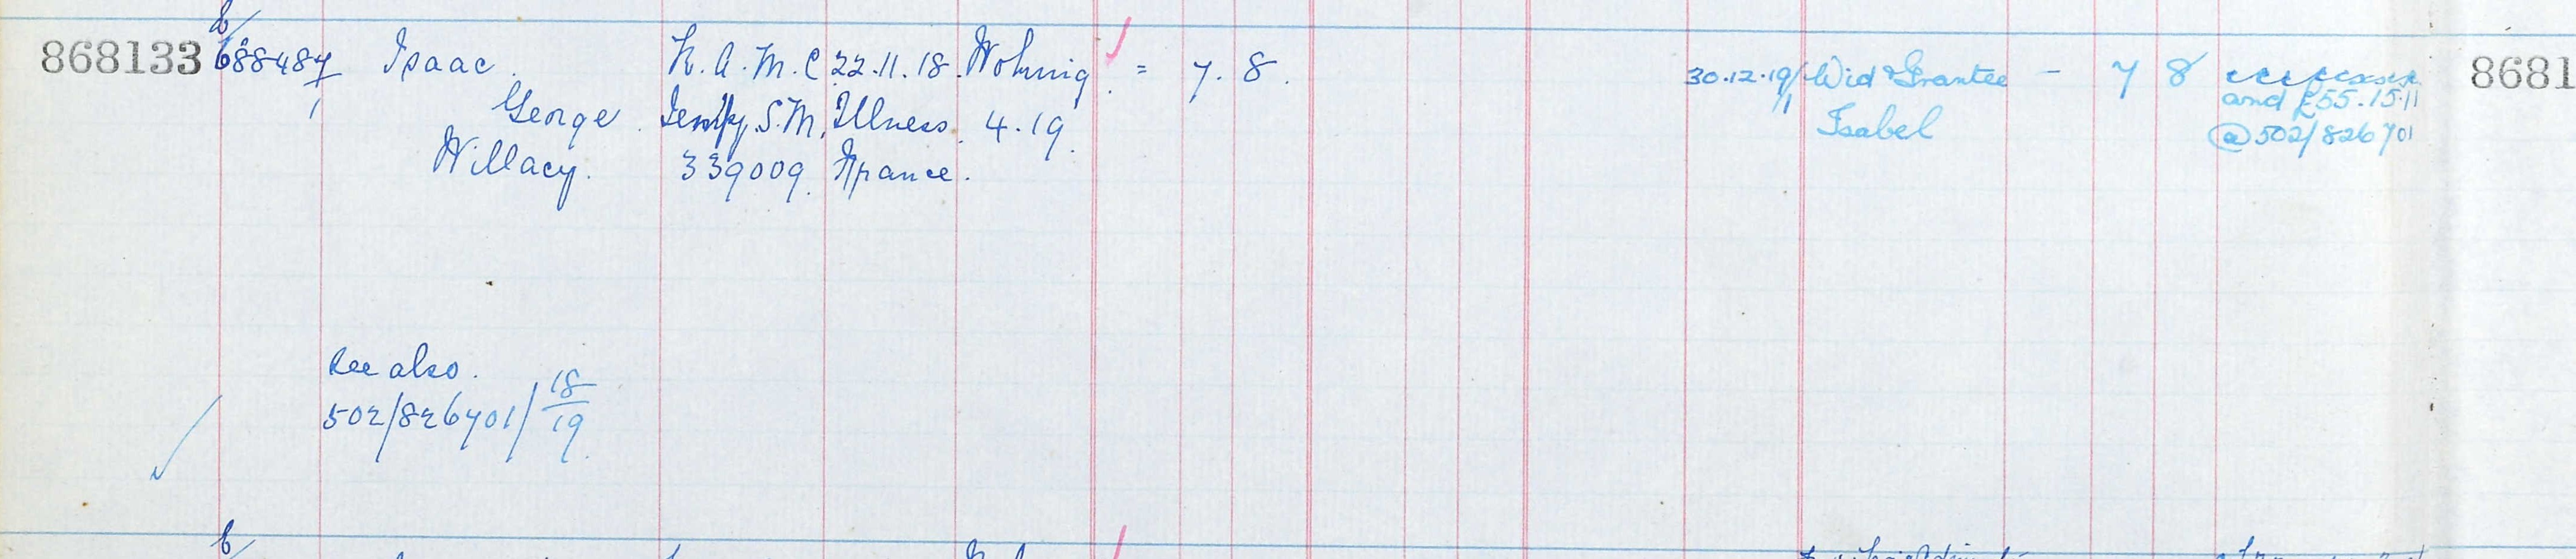 868133 E/688487/1 Isaac R.A.M.C 22.11.18. Woking = 7. 8. 30.12.19 Wid & Grantee - 7 8 8681
George Illness. 4.19. Isabel and £55.15.11
Willacy. 339009. France. @502/826701
See also.
502/826701/18/19.